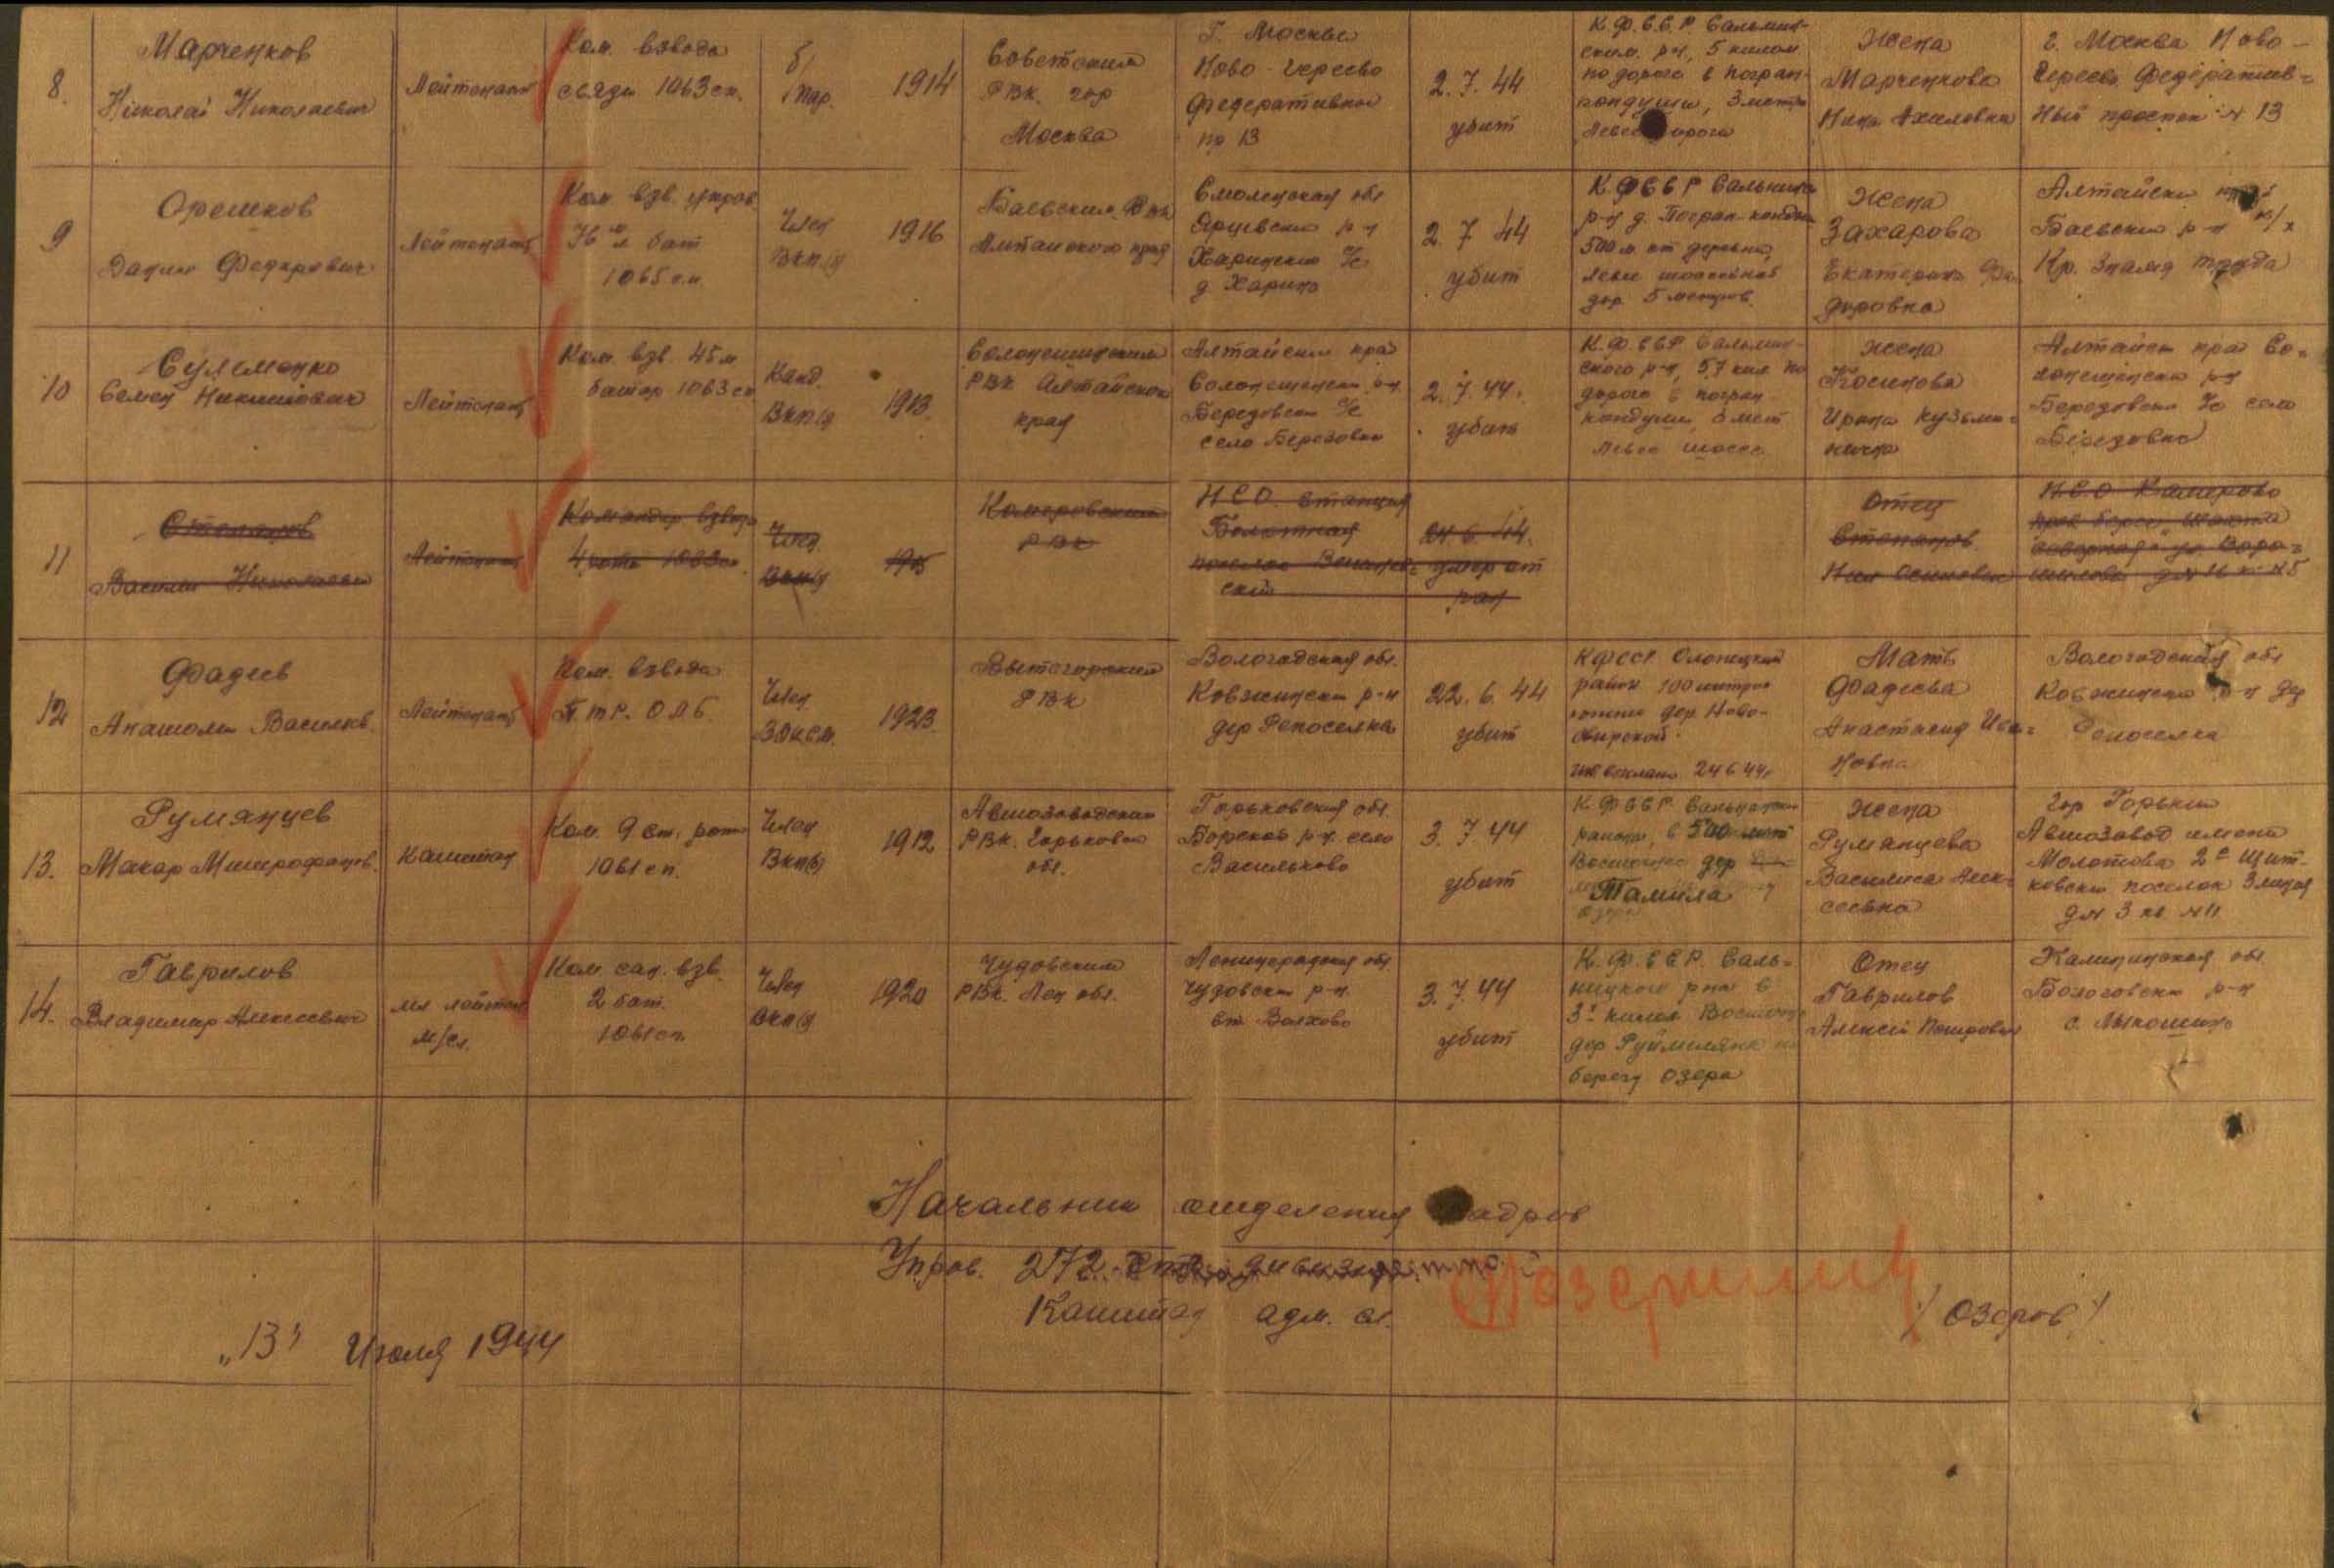 8.
Марченков
Николай Николаевич
Лейтенант
Ком. взвода
связи 1063 сп.
б/
пар.
1914
Советским
РВК. гор
Москва
Г. Москва
Ново-Гереево
Федеративной
пр 13
2.7.44
убит
К.Ф.С.С.Р Сальмин-
ском. р-н, 5 килом
по дороге в погран-
кондуши, 3 метра
Левее дороги
Жена
Марченкова
Нина
г. Москва Ново-
Гереево Федератив=
ный проспек № 13
9
Орешков
Данил Федорович
Лейтенант
Ком. взв. управ
бат
1065 с.п
Член
ВКП(б)
1916
Баевским РВК
Алтайского края
Смоленская обл
Ярцевский р-н
Харинский с/с
д. Харино
2.7.44
убит
К.ФССР Сальминс
р-н д. Погран-кондуш
500 м от деревни,
левее шоссейной
дор 5 метров.
Жена
Захарова
Екатерина Фе
доровна
Алтайски край
Баевский р-н
к/х
Кр. Знамя труда
10
Сулеменко
Семен
Лейтенант
Ком. взв. 45 м
батар 1063 сп
Канд.
ВКП(б)
1913.
Солонешенским
РВК Алтайского
края
Алтайский край
Солонешенски р-н
Березовски с/с
село Березовка
2.7.44.
убит
К.Ф.ССР Сальмин-
ского р-н, 57 кил по
дороге в погран-
кондуши, 3 мет
Левее шоссе.
жена
Косинова
Ирина Кузьми=
нична
Алтайск край Со=
лонешенски р-н
Березовски с/с село
Березовка
11
Степанов
Василий Николаевич
Лейтенант
Командир взвода
4 роты 1063 сп.
Член
ВКП(б)
1915
Кемеровским
РВК
НСО. станция
Болотная
поселок
ский
24.6.44.
умер от
ран
Отец
Степанов
НСО Кемерово
ул Воро=
шилова
12
Фадеев
Анатолий Васильев.
Лейтенант
Ком. взвода
П.Т.Р. ОЛБ.
Член
ВЛКСМ.
1923
Вытегорским
РВК
Вологодская обл.
Ковжински р-н
дер Репоселка
22.6.44
убит
КФССР Олонецкий
район 100 метров
дер. Ново-
24 6 44г
Мать
Фадеева
Анастасия Ива=
новна
Вологодская обл
Ковжинско р-н дер
Репоселка
13.
Румянцев
Макар Митрофанов.
Капитан
Ком. 9 ст. роты
1061 сп.
Член
ВКП(б)
1912
Автозаводским
РВК. Горьковск
обл.
Горьковская обл.
Борской р-н. село
Васильково
3.7.44
убит
К.ФССР.
района, в 500 мет
Восточнее дер
Тамила
жена
Румянцева
Василиса Алек=
сеевна
Гор Горький
Автозавод имени
Молотова 2е Щит-
ковски поселок 3 линия
д № 3 кв № 11
14.
Гаврилов
Владимир Алексеевич
мл лейтен
м/сл.
Ком. сап. взв.
2 бат.
1061 сп
Член
ВКП(б)
1920
Чудовским
РВК. Лен обл.
Ленинградская обл
Чудовски р-н.
ст. Волхово
3.7.44
убит
К.Ф.ССР. Саль=
ницкого рна в
Восточн
дер
берегу озера
Отец
Гаврилов
Алексей Петрович
Калининская обл
Бологовски р-н
с. Мыкошино
Начальник отделения кадров
Управ. 272.
Капитан адм. сл.
/ Озеров /
„13" Июля 1944